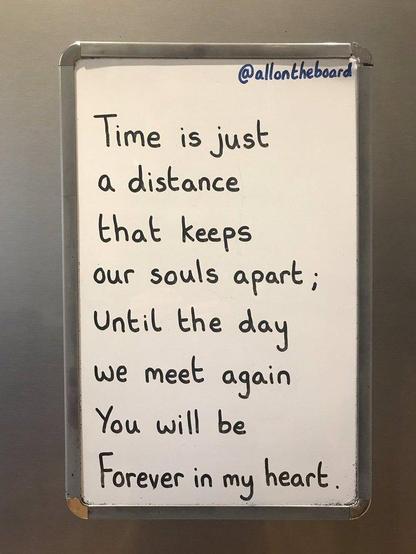 @allontheboard
Time is just
a distance
that keeps
our souls apart;
Until the day
we meet again
You will be
Forever in my heart.